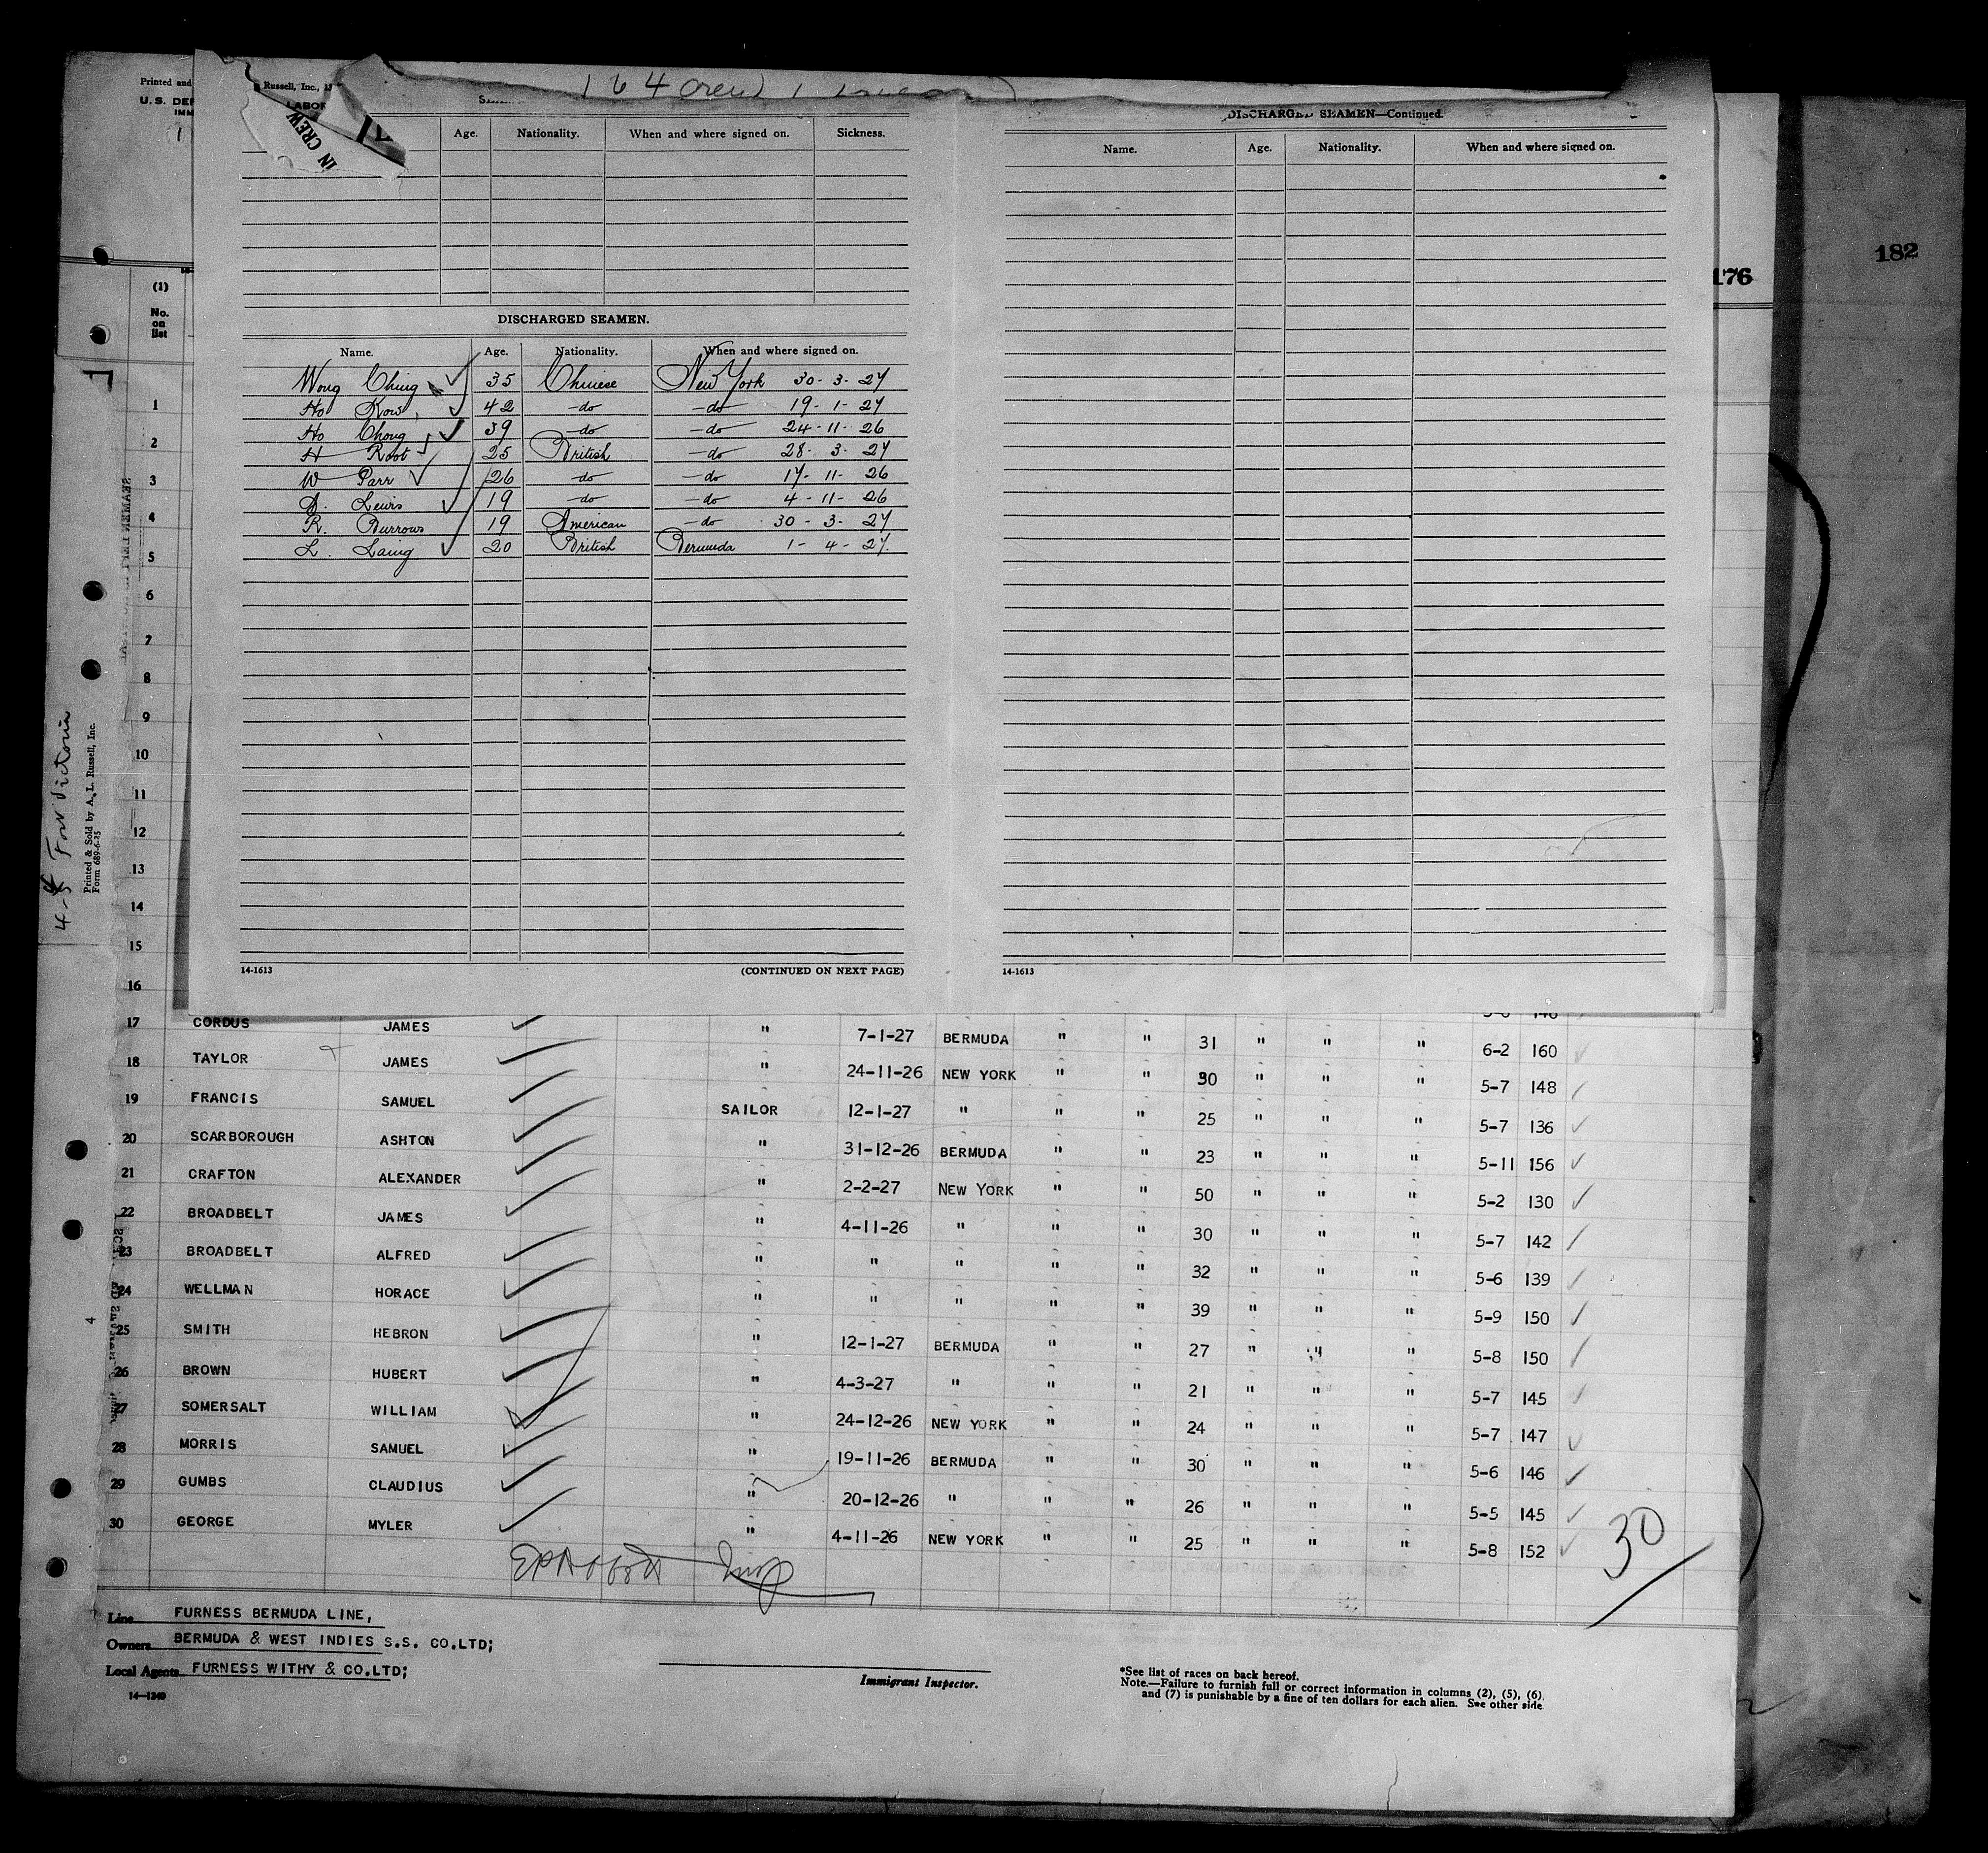 Printed and
Russell, Inc.,
U. S. DEP
LABOR
IMM
IN CREW
164 Crew
Age. Nationality. When and where signed on. Sickness.
DISCHARGED SEAMEN.
Name. Age. Nationality. When and where signed on.
Wong Ching 35 Chinese New York 30-3-27
Ho Kow 42 -do -do- 19-1-27
Ho Chong 39 -do -do- 24-11-26
H Root 25 British -do- 28-3-27
W Parr 26 -do -do- 17-11-26
D. Lewis 19 -do -do- 4-11-26
R. Burrows 19 American -do- 30-3-27
L. Laing 20 British Bermuda 1-4-27.
14-1613 (CONTINUED ON NEXT PAGE)
DISCHARGED SEAMEN—Continued.
Name. Age. Nationality. When and where signed on.
14-1613
176
182
(1)
No.
on
list
1
2
3
4
5
6
7
8
9
10
11
12
13
14
15
16
17 CORDUS JAMES " 7-1-27 BERMUDA " " 31 " " " 6-2 160
18 TAYLOR JAMES " 24-11-26 NEW YORK " " 30 " " " 5-7 148
19 FRANCIS SAMUEL SAILOR 12-1-27 " " " 25 " " " 5-7 136
20 SCARBOROUGH ASHTON " 31-12-26 BERMUDA " " 23 " " " 5-11 156
21 CRAFTON ALEXANDER " 2-2-27 NEW YORK " " 50 " " " 5-2 130
22 BROADBELT JAMES " 4-11-26 " " " 30 " " " 5-7 142
23 BROADBELT ALFRED " " " " " 32 " " " 5-6 139
24 WELLMAN HORACE " " " " " 39 " " " 5-9 150
25 SMITH HEBRON " 12-1-27 BERMUDA " " 27 " " " 5-8 150
26 BROWN HUBERT " 4-3-27 " " " 21 " " " 5-7 145
27 SOMERSALT WILLIAM " 24-12-26 NEW YORK " " 24 " " " 5-7 147
28 MORRIS SAMUEL " 19-11-26 BERMUDA " " 30 " " " 5-6 146
29 GUMBS CLAUDIUS " 20-12-26 " " " 26 " " " 5-5 145
30 GEORGE MYLER " 4-11-26 NEW YORK " " 25 " " " 5-8 152
30
Line FURNESS BERMUDA LINE,
Owners BERMUDA & WEST INDIES S.S. CO.LTD;
Local Agents FURNESS WITHY & CO.LTD;
14—1240
Immigrant Inspector.
*See list of races on back hereof.
Note.—Failure to furnish full or correct information in columns (2), (5), (6)
and (7) is punishable by a fine of ten dollars for each alien. See other side
4-4 Fort Victoria
Printed & Sold by A. L. Russell, Inc.
Form 689-6-25
4